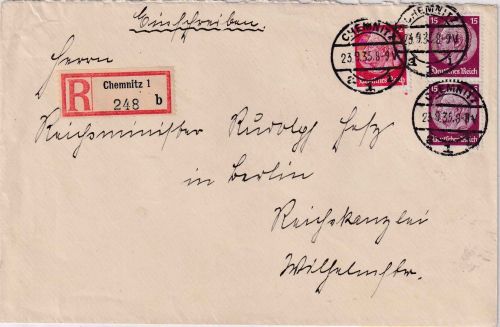 Einschreiben.
Herrn
R Chemnitz 1
248 b
Reichsminister Rudolf Hess
in Berlin
Reichskanzlei
Wilhelmstr.
CHEMNITZ
23.9.35.8-9V
1
CHEMNITZ
23.9.35.8-9V
1
CHEMNITZ
23.9.35.8-9V
1
15 15
Deutsches Reich
15 15
Deutsches Reich